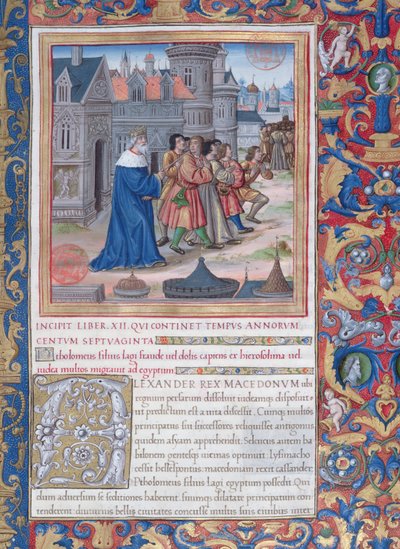 INCIPIT LIBER. XII. QVI CONTINET TEMPVS ANNORVM
CENTVM SEPTVAGINTA
Ptholomeus filius lagi fraude uel dolis capiens ex hierosolima uel
iudea multos migrauit ad egyptum
ALEXANDER REX MACEDONVM ubi
regnum persarum dissoluit iudeamq; disposuit
ut predictum est a uita discessit. Cumq; multos
principatus sui successores reliquisset antigonus
quidem asyam apprehendit. Seleucus autem ba
bilonem gentesq; uicinas optinuit. Lysimacho
cessit hellespontus. macedoniam rexit cassander.
Ptholomeus filius lagi egyptum possedit. Qui
dum aduersum se seditiones haberent. suumq; dilatare principatum con
tenderent diuturnis bellis ciuitates concusse multis suis ciuibus inter